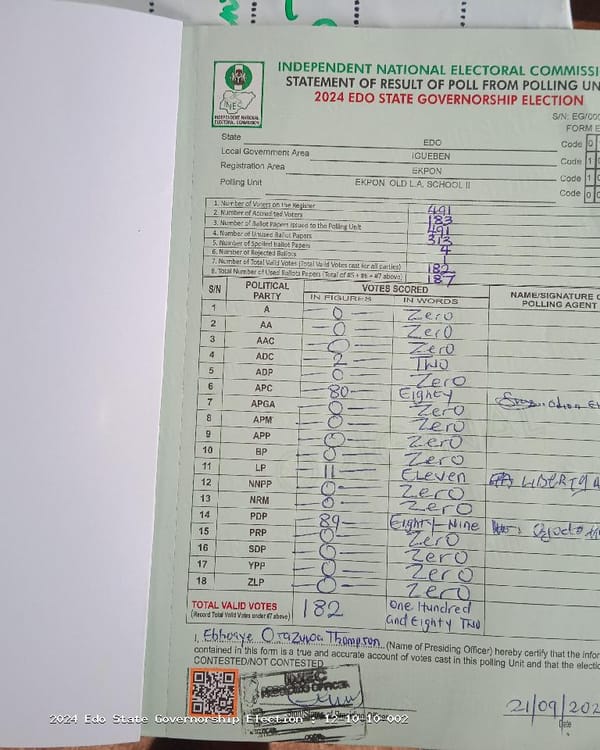 INDEPENDENT NATIONAL ELECTORAL COMMISSI
STATEMENT OF RESULT OF POLL FROM POLLING UN
2024 EDO STATE GOVERNORSHIP ELECTION
INEC
INDEPENDENT NATIONAL ELECTORAL COMMISSION
S/N: EG/00
FORM E
State EDO Code 0
Local Government Area IGUEBEN Code 1
Registration Area EKPON Code 1 0
Polling Unit EKPON OLD L.A. SCHOOL II Code 0 0
1. Number of Voters on the Register 491
2. Number of Accredited Voters 183
3. Number of Ballot Papers Issued to the Polling Unit 491
4. Number of Unused Ballot Papers 313
5. Number of Spoiled Ballot Papers 4
6. Number of Rejected Ballots 1
7. Number of Total Valid Votes (Total Valid Votes cast for all parties) 182
8. Total Number of Used Ballots Papers (Total of #5 + #6 + #7 above) 187
S/N POLITICAL PARTY VOTES SCORED NAME/SIGNATURE O POLLING AGENT
IN FIGURES IN WORDS
1 A 0 Zero
2 AA 0 Zero
3 AAC 0 Zero
4 ADC 2 Two
5 ADP 0 Zero
6 APC 80 Eighty
7 APGA 0 Zero
8 APM 0 Zero
9 APP 0 Zero
10 BP 0 Zero
11 LP 11 Eleven LIBERTY
12 NNPP 0 Zero
13 NRM 0 Zero
14 PDP 89 Eighty Nine
15 PRP 0 Zero
16 SDP 0 Zero
17 YPP 0 Zero
18 ZLP 0 Zero
TOTAL VALID VOTES 182 One Hundred
(Record Total Valid Votes under #7 above) and Eighty Two
I, Thompson (Name of Presiding Officer) hereby certify that the infor
contained in this form is a true and accurate account of votes cast in this polling Unit and that the electio
CONTESTED/NOT CONTESTED
INEC
PRESIDING OFFICER
21/09/202
Date
2024 Edo State Governorship Election : 12-10-10-002